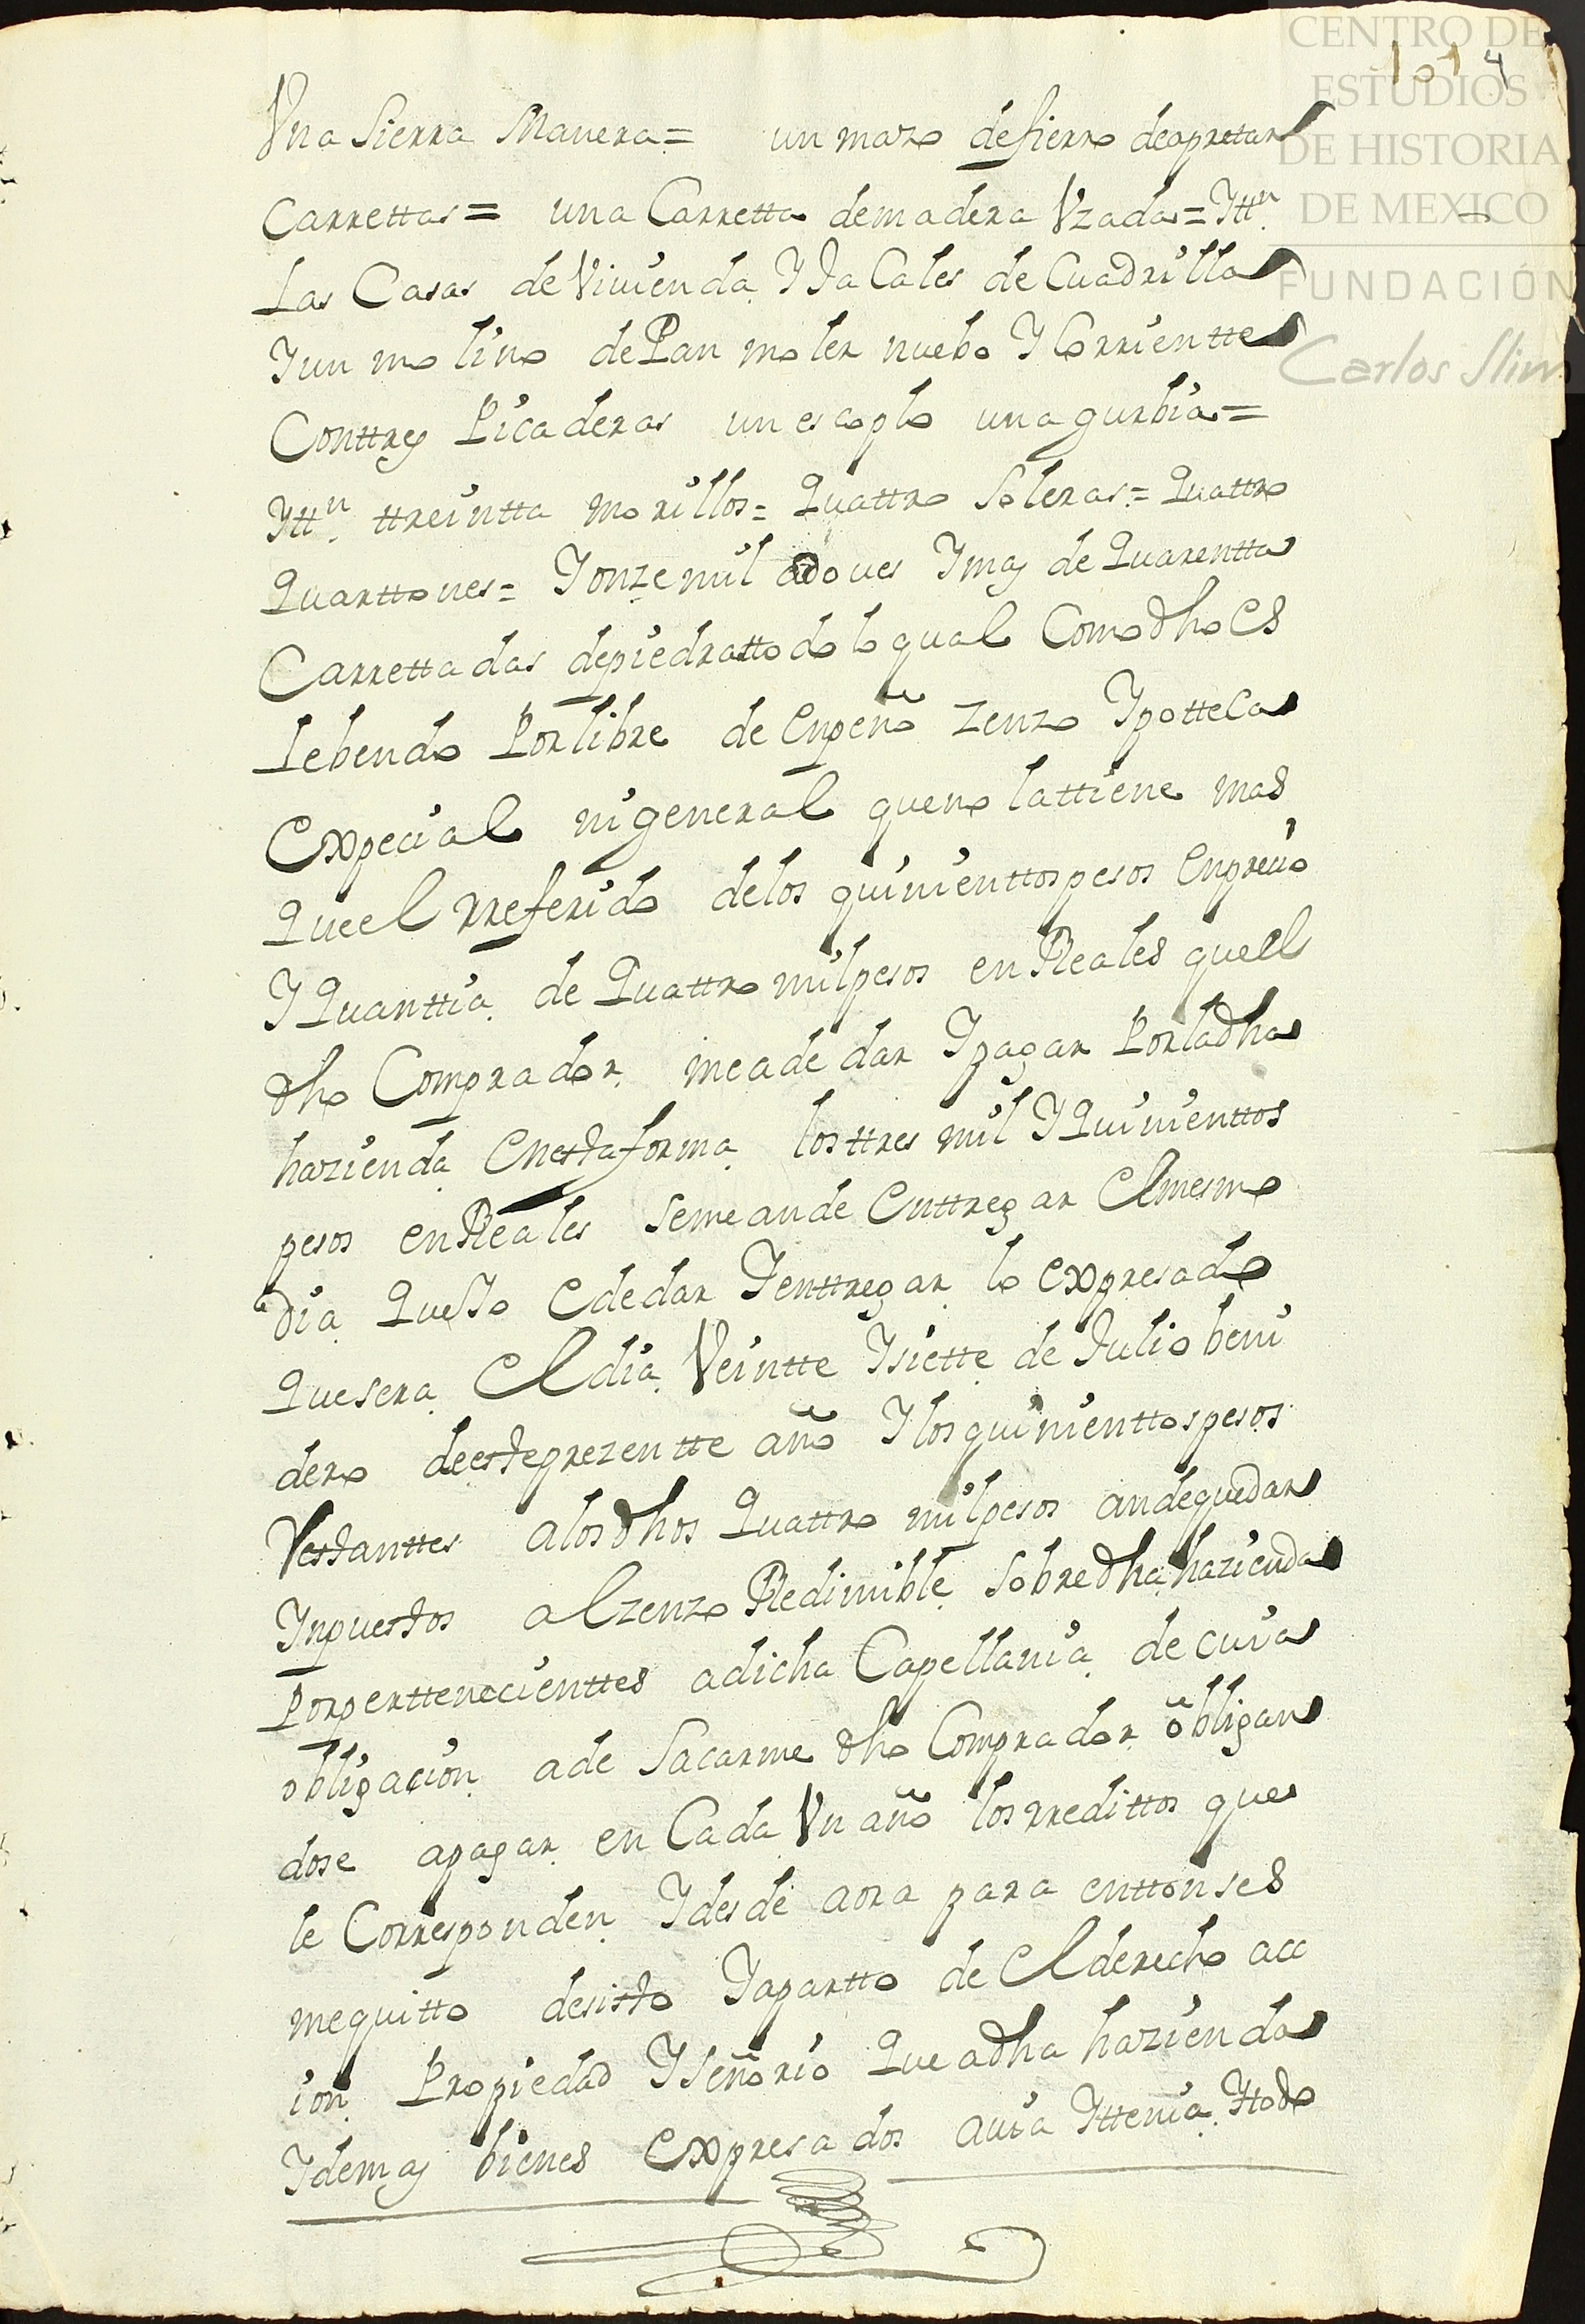 CENTRO DE
ESTUDIOS
DE HISTORIA
DE MEXICO
FUNDACIÓN
Carlos Slim
4
Vna Sierra Manera = un mazo defierro deapretar
Carrettas = una Carretta demadera Vzada = Ittn.
Las Casas de Viuienda Y Ja Cales de Cuadrilla
Y un molino de Pan moler nuebo Y Corrientte
Conttres Picaderas un escoplo una gurbia =
Ittn. ttreintta morillos = Quattro Soleras = Quattro
Quarttones = Y onze mil adoues Y mas de Quarentta
Carrettadas depiedra ttodo lo qual Como dho es
Lebendo Por libre de Enpeño zenzo Ypotteca
Expecial ni general queno lattiene mas
Que el rreferido delos quinienttos pesos Enprecio
Y Quanttia de Quattro mil pesos en Reales que el
dho Comprador meade dar Y pagar Por la dha
hazienda Enesta forma los ttres mil Y Quinienttos
pesos en Reales seme ande Enttregar Elmesmo
dia Que Yo E de dar Y enttregar lo expresado
Que sera El dia Veintte Y siette de Julio beni
dero de este prezentte año Y los quinienttos pesos
Restanttes a los dhos Quattro mil pesos an de quedar
Ynpuestos al zenzo Redimible sobre dha hazienda
Por perttenecienttes a dicha Capellania de cuia
obligacion a de Sacarme dho Comprador obligan
dose apagar en Cada Vn año los rredittos que
le Corresponden Y desde aora para enttonses
me quitto desisto Y apartto de El derecho acc
ion Propiedad Y Señorio Que a dha hazienda
Y demas bienes Expresados auia Y ttenia Y ttodo